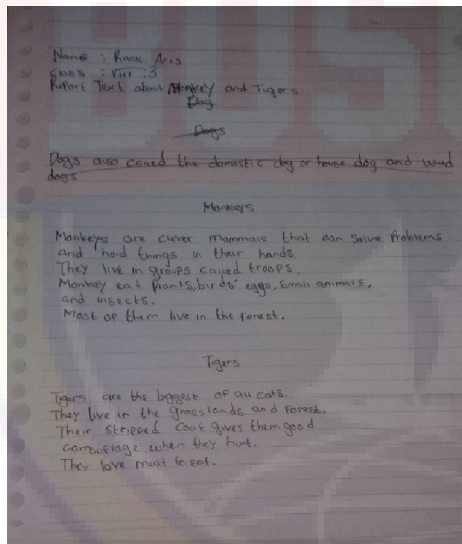 Name : Rival Aris
Class : VIII . 3
Report Text about Monkey and Tigers
Dog
Dogs
Dogs also called the domestic dog or house dog and wild
dogs
Monkeys
Monkeys are clever mammals that can solve Problems
and hold things in their hands.
They live in groups called troops.
Monkey eat Plants, birds' eggs, small animals,
and insects.
Most of them live in the forest.
Tigers
Tigers are the biggest of all cats.
They live in the grasslands and Forest.
Their stripped Coat gives them good
camouflage when they hunt.
They love meat to eat.